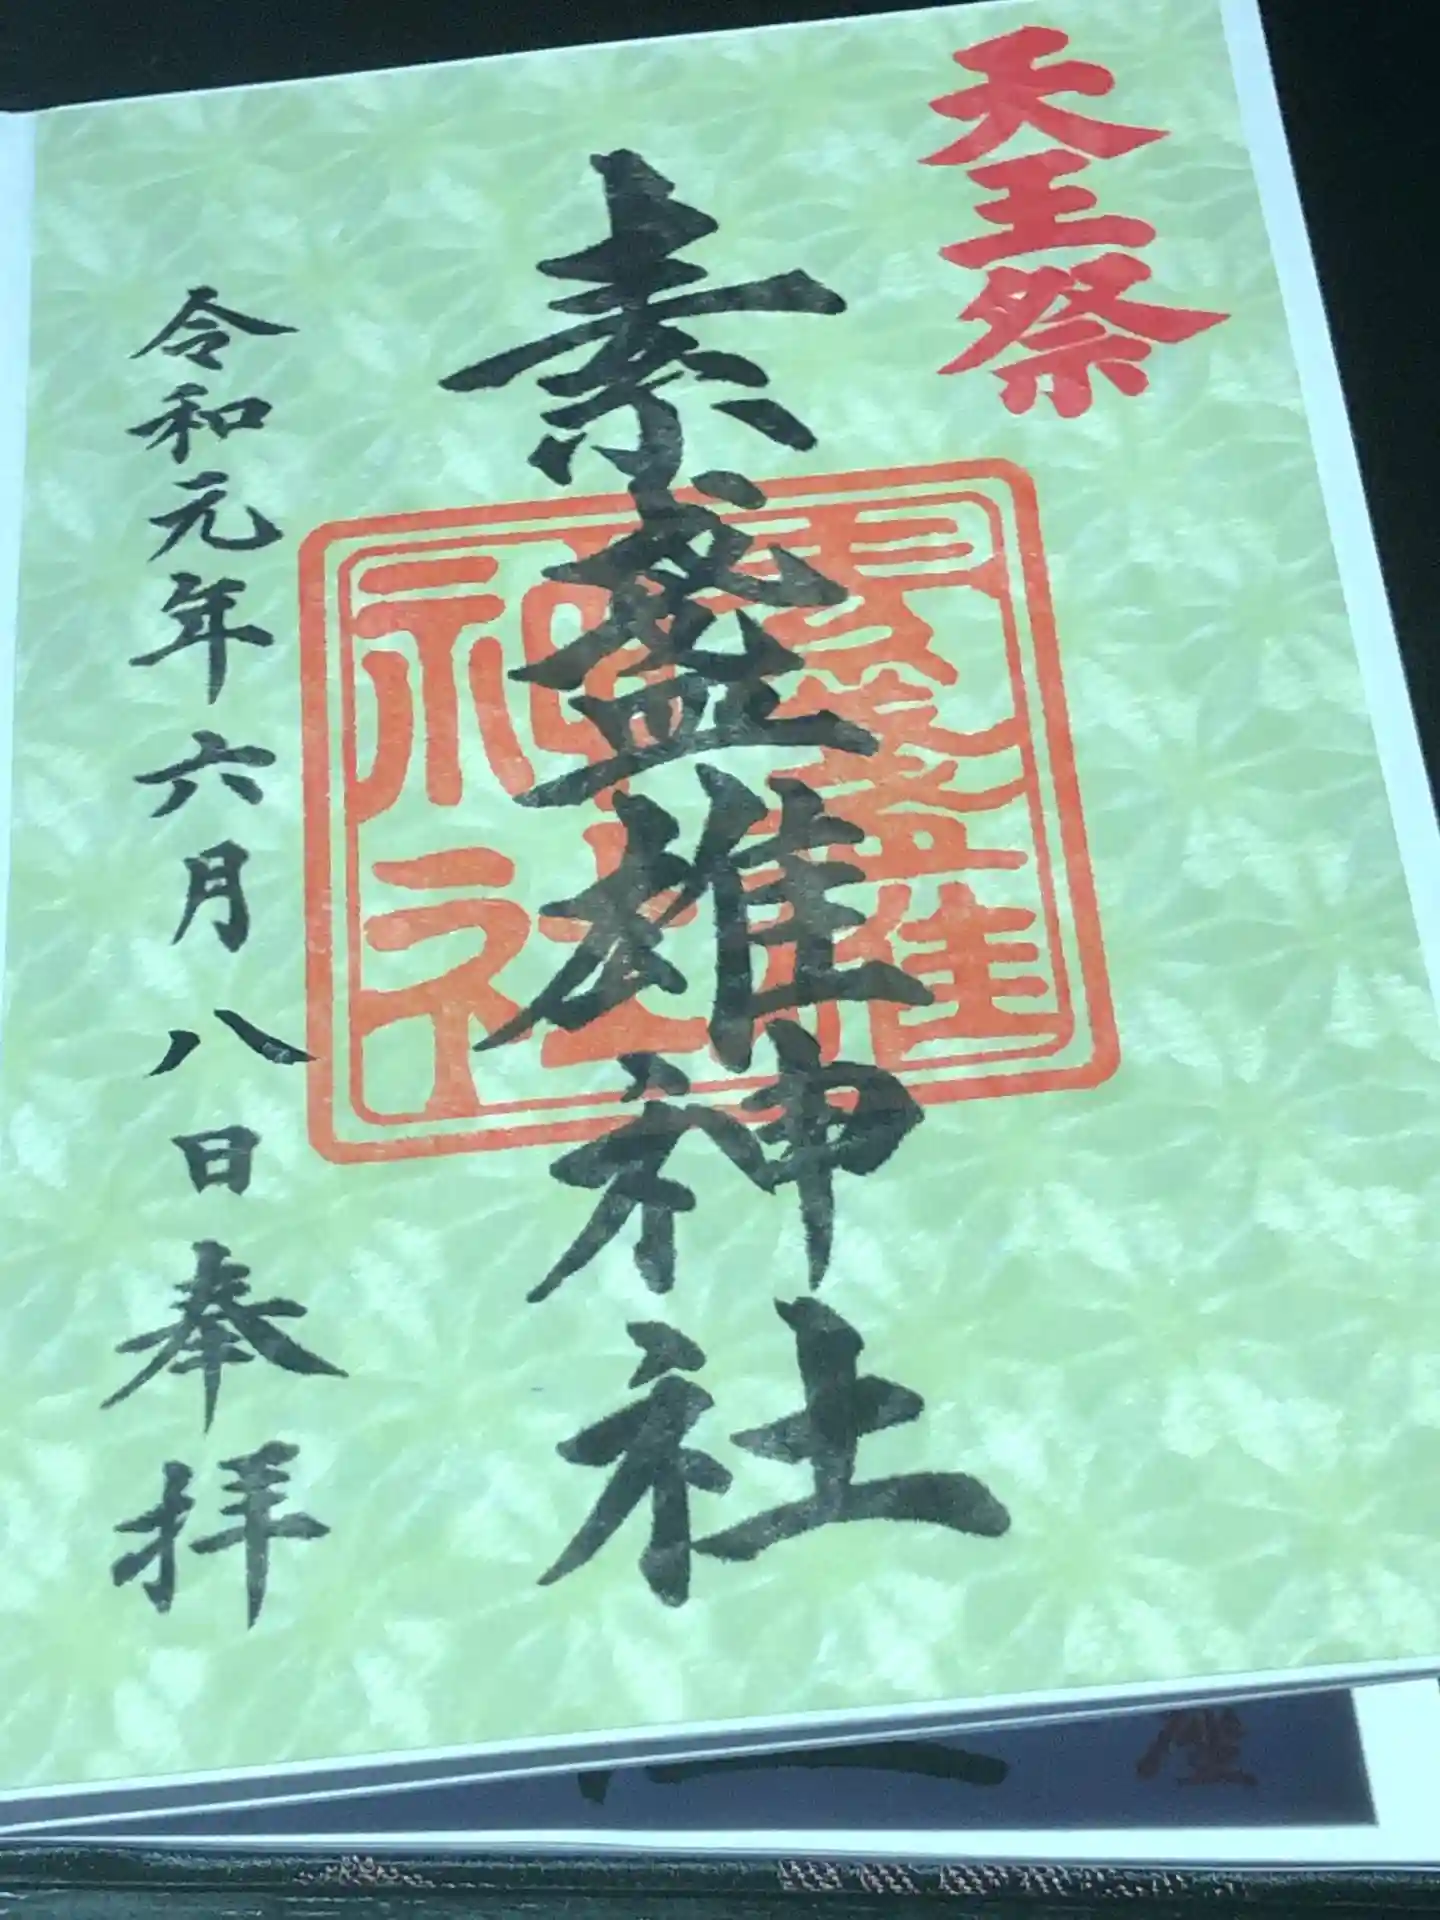 天王祭
素盞雄神社
素盞雄
神社
令和元年六月八日奉拝